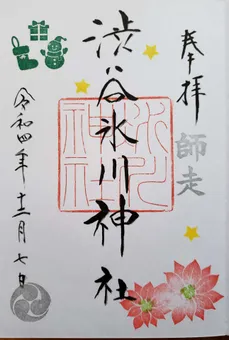 奉拝
師走
渋谷氷川神社
令和四年十二月七日